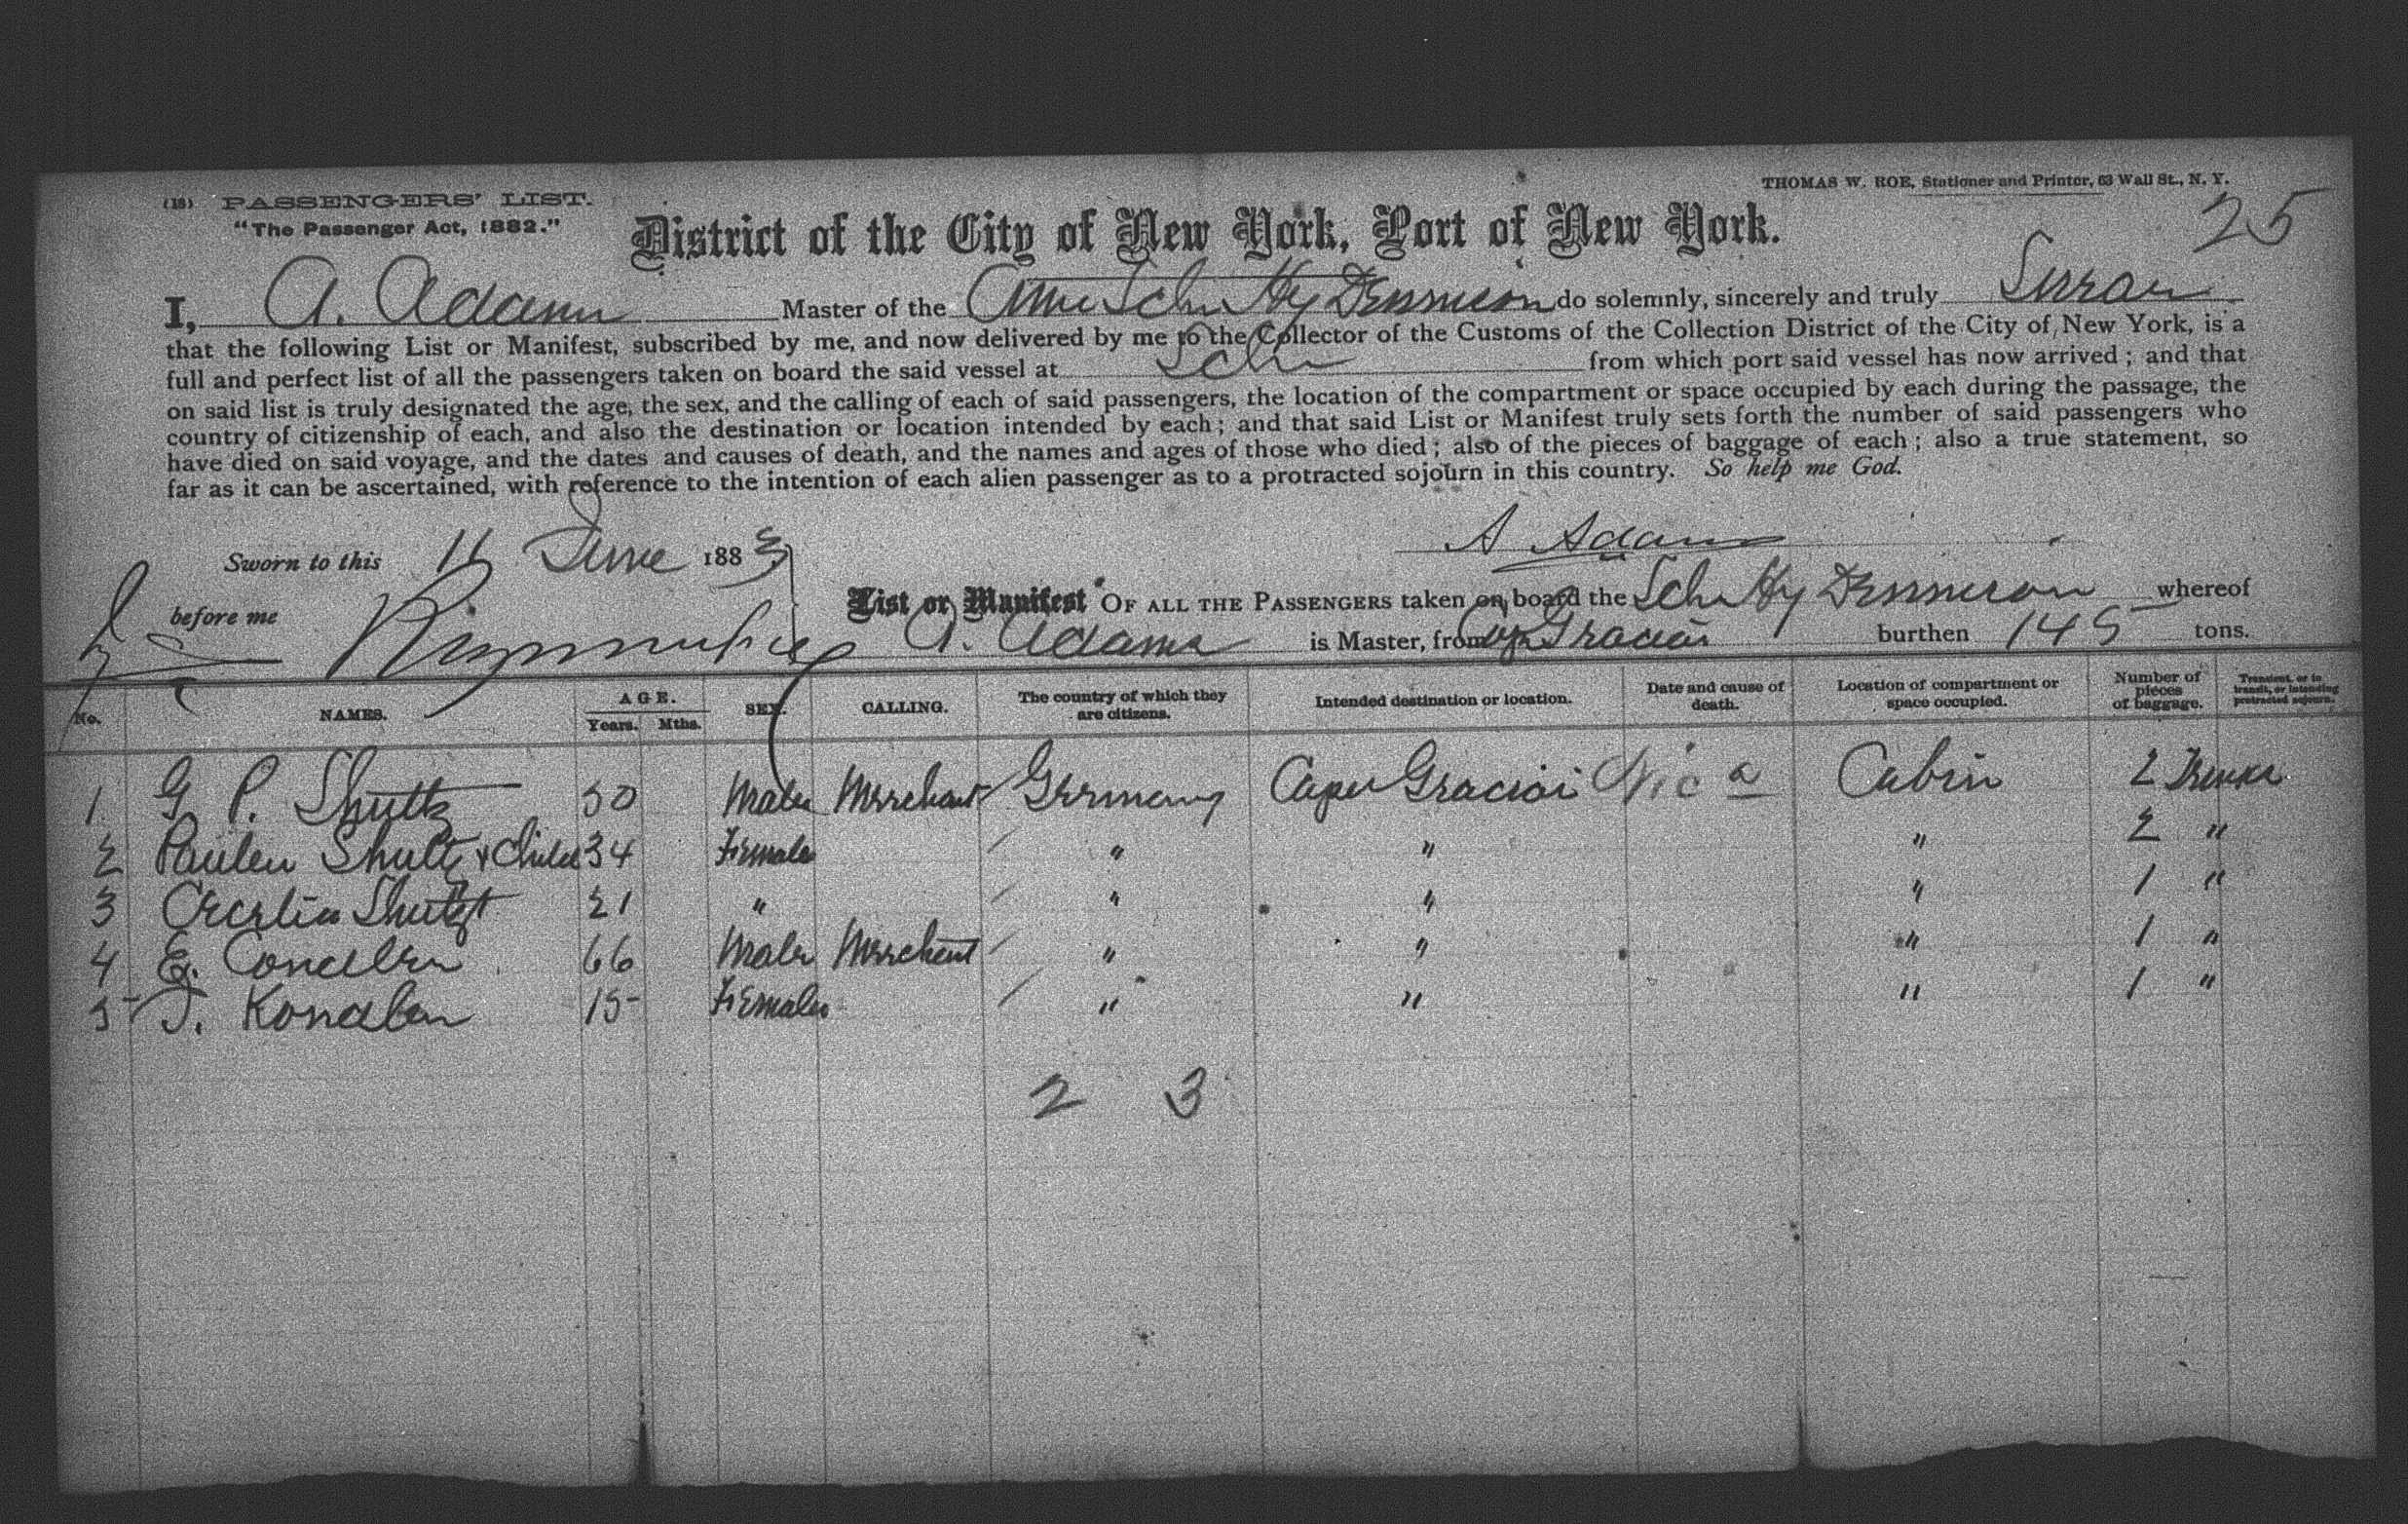 (18) PASSENGERS' LIST.
"The Passenger Act, 1882."
THOMAS W. ROE, Stationer and Printer, 63 Wall St., N. Y.
25
District of the City of New York, Port of New York.
I, A. Adams Master of the Schr Hy Dennison do solemnly, sincerely and truly
that the following List or Manifest, subscribed by me, and now delivered by me to the Collector of the Customs of the Collection District of the City of New York, is a
full and perfect list of all the passengers taken on board the said vessel at from which port said vessel has now arrived; and that
on said list is truly designated the age, the sex, and the calling of each of said passengers, the location of the compartment or space occupied by each during the passage, the
country of citizenship of each, and also the destination or location intended by each; and that said List or Manifest truly sets forth the number of said passengers who
have died on said voyage, and the dates and causes of death, and the names and ages of those who died; also of the pieces of baggage of each; also a true statement, so
far as it can be ascertained, with reference to the intention of each alien passenger as to a protracted sojourn in this country. So help me God.
A Adams
Sworn to this 16 June 1883
before me
List or Manifest OF ALL THE PASSENGERS taken on board the Schr Hy Dennison whereof
A. Adams is Master, from Cape Gracias burthen 145 tons.
No. NAMES. AGE. Years. Mths. SEX. CALLING. The country of which they are citizens. Intended destination or location. Date and cause of death. Location of compartment or space occupied. Number of pieces of baggage. Transient, or in transit, or intending protracted sojourn.
1 G. P. Shultz 50 Male Merchant Germany Cape Gracias Nica Cabin 2 Trunks
2 Paulen Shultz & Child 34 Female " " " 2 "
3 Cecelia Shultz 21 " " " " 1 "
4 E. Conalben 66 Male Merchant " " " 1 "
5 J. Konalben 15 Female " " " 1 "
2 3